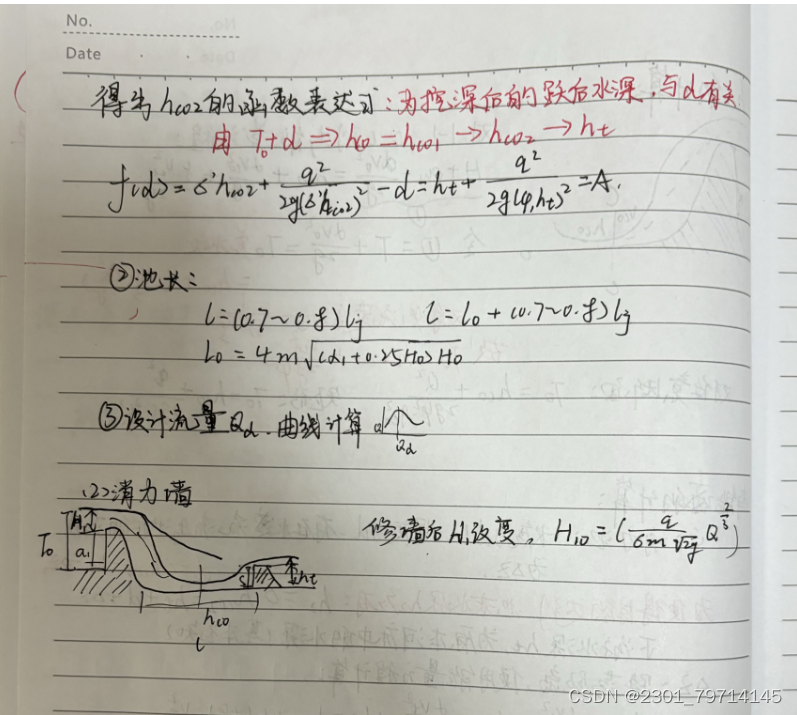 No.
Date
得为 hco2的函数表达式:为挖深后的跃后水深,与d有关
由 T0+d ⇒ hco = hco1 → hco2 → ht
f(d) = σ'hco2 + q²/2g(σ'hco2)² - d = ht + q²/2g(φ,ht)² = A.
②池长:
l=(0.7~0.8)lj l = l0 + (0.7~0.8) lj
l0 = 4m√(d1+0.25H0)H0
③设计流量Qd.曲线计算 d
Qd
(2)消力墙
修墙后H1改变, H10 = (q/σm√2g Q^2/3)
T0 H1 a1 ht
hco
l
CSDN @2301_79714145